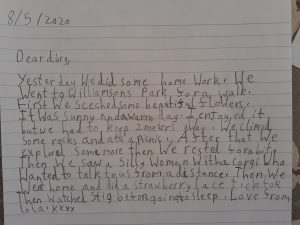 8/5/2020
Dear diary,
Yesterday we did some home work. We
went to Williamsons Park for a walk.
First we sceched some beautiful flowers.
It was sunny and a warm day. I enjoyed it
but we had to keep 2 meters away. We climed
some rocks and ate a picnic. After that we
explored some more then we rested for a bit.
Then we saw a silly woman with a corgi who
wanted to talk to us from a distance. Then we
went home and did a strawberry lace tick tok
Then watched Stig before going to sleep. Love from
Lola xxxx